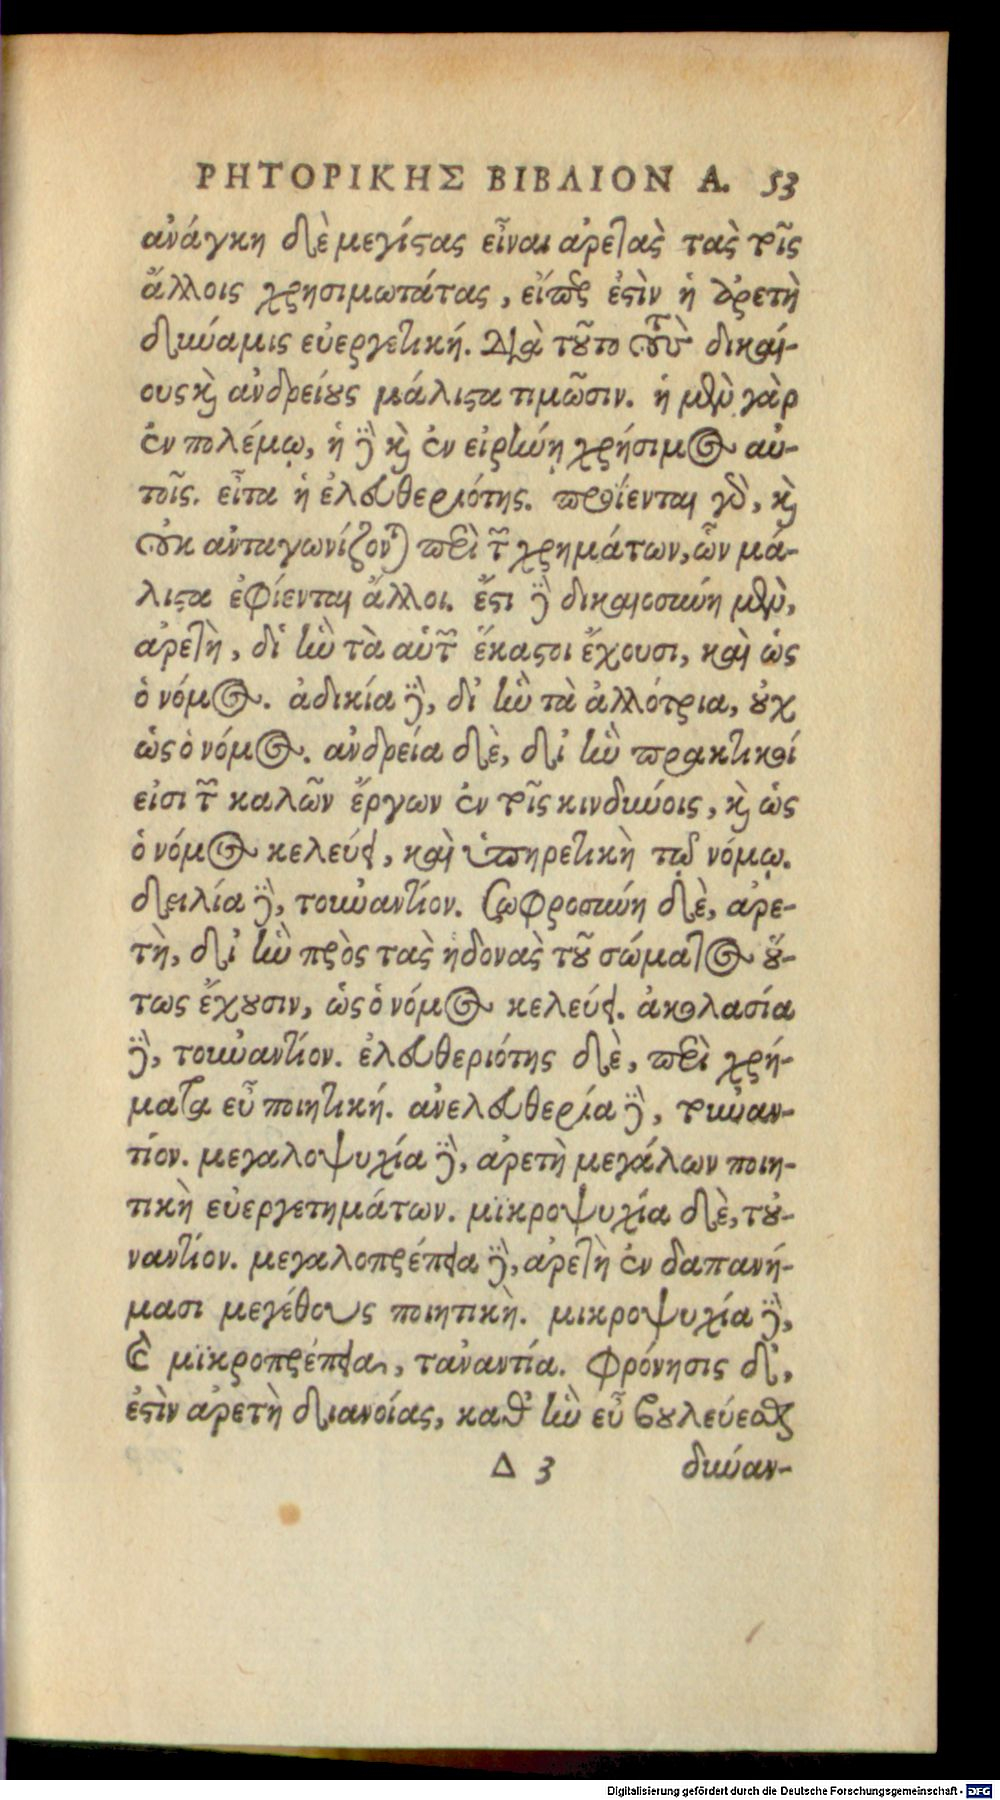 ΡΗΤΟΡΙΚΗΣ ΒΙΒΛΙΟΝ Α. 53
ἀνάγκη δὲ μεγίστας εἶναι ἀρετὰς τὰς τοῖς
ἄλλοις χρησιμωτάτας, εἴπερ ἐστὶν ἡ ἀρετὴ
δύναμις εὐεργετική. διὰ τοῦτο τοὺς δικαί-
ους καὶ ἀνδρείους μάλιστα τιμῶσιν. ἡ μὲν γὰρ
ἐν πολέμῳ, ἡ δὲ καὶ ἐν εἰρήνῃ χρήσιμος αὐ-
τοῖς. εἶτα ἡ ἐλευθεριότης. προΐενται γὰρ, καὶ
οὐκ ἀνταγωνίζονται περὶ τῶν χρημάτων, ὧν μά-
λιστα ἐφίενται ἄλλοι. ἔστι δὲ δικαιοσύνη μὲν,
ἀρετὴ, δι' ἣν τὰ αὑτῶν ἕκαστοι ἔχουσι, καὶ ὡς
ὁ νόμος. ἀδικία δὲ, δι' ἣν τὰ ἀλλότρια, οὐχ
ὡς ὁ νόμος. ἀνδρεία δὲ, δι' ἣν πρακτικοί
εἰσι τῶν καλῶν ἔργων ἐν τοῖς κινδύνοις, καὶ ὡς
ὁ νόμος κελεύει, καὶ ὑπηρετικὴ τῷ νόμῳ.
δειλία δὲ, τοὐναντίον. σωφροσύνη δὲ, ἀρε-
τὴ, δι' ἣν πρὸς τὰς ἡδονὰς τοῦ σώματος οὕ-
τως ἔχουσιν, ὡς ὁ νόμος κελεύει. ἀκολασία
δὲ, τοὐναντίον. ἐλευθεριότης δὲ, περὶ χρή-
ματα εὖ ποιητική. ἀνελευθερία δὲ, τοὐναν-
τίον. μεγαλοψυχία δὲ, ἀρετὴ μεγάλων ποιη-
τικὴ εὐεργετημάτων. μικροψυχία δὲ, τοὐ-
ναντίον. μεγαλοπρέπεια δὲ, ἀρετὴ ἐν δαπανή-
μασι μεγέθους ποιητικὴ. μικροψυχία δὲ,
καὶ μικροπρέπεια, τἀναντία. φρόνησις δ',
ἐστὶν ἀρετὴ διανοίας, καθ' ἣν εὖ βουλεύεσθαι
Δ 3 δύναν-
Digitalisierung gefördert durch die Deutsche Forschungsgemeinschaft - DFG